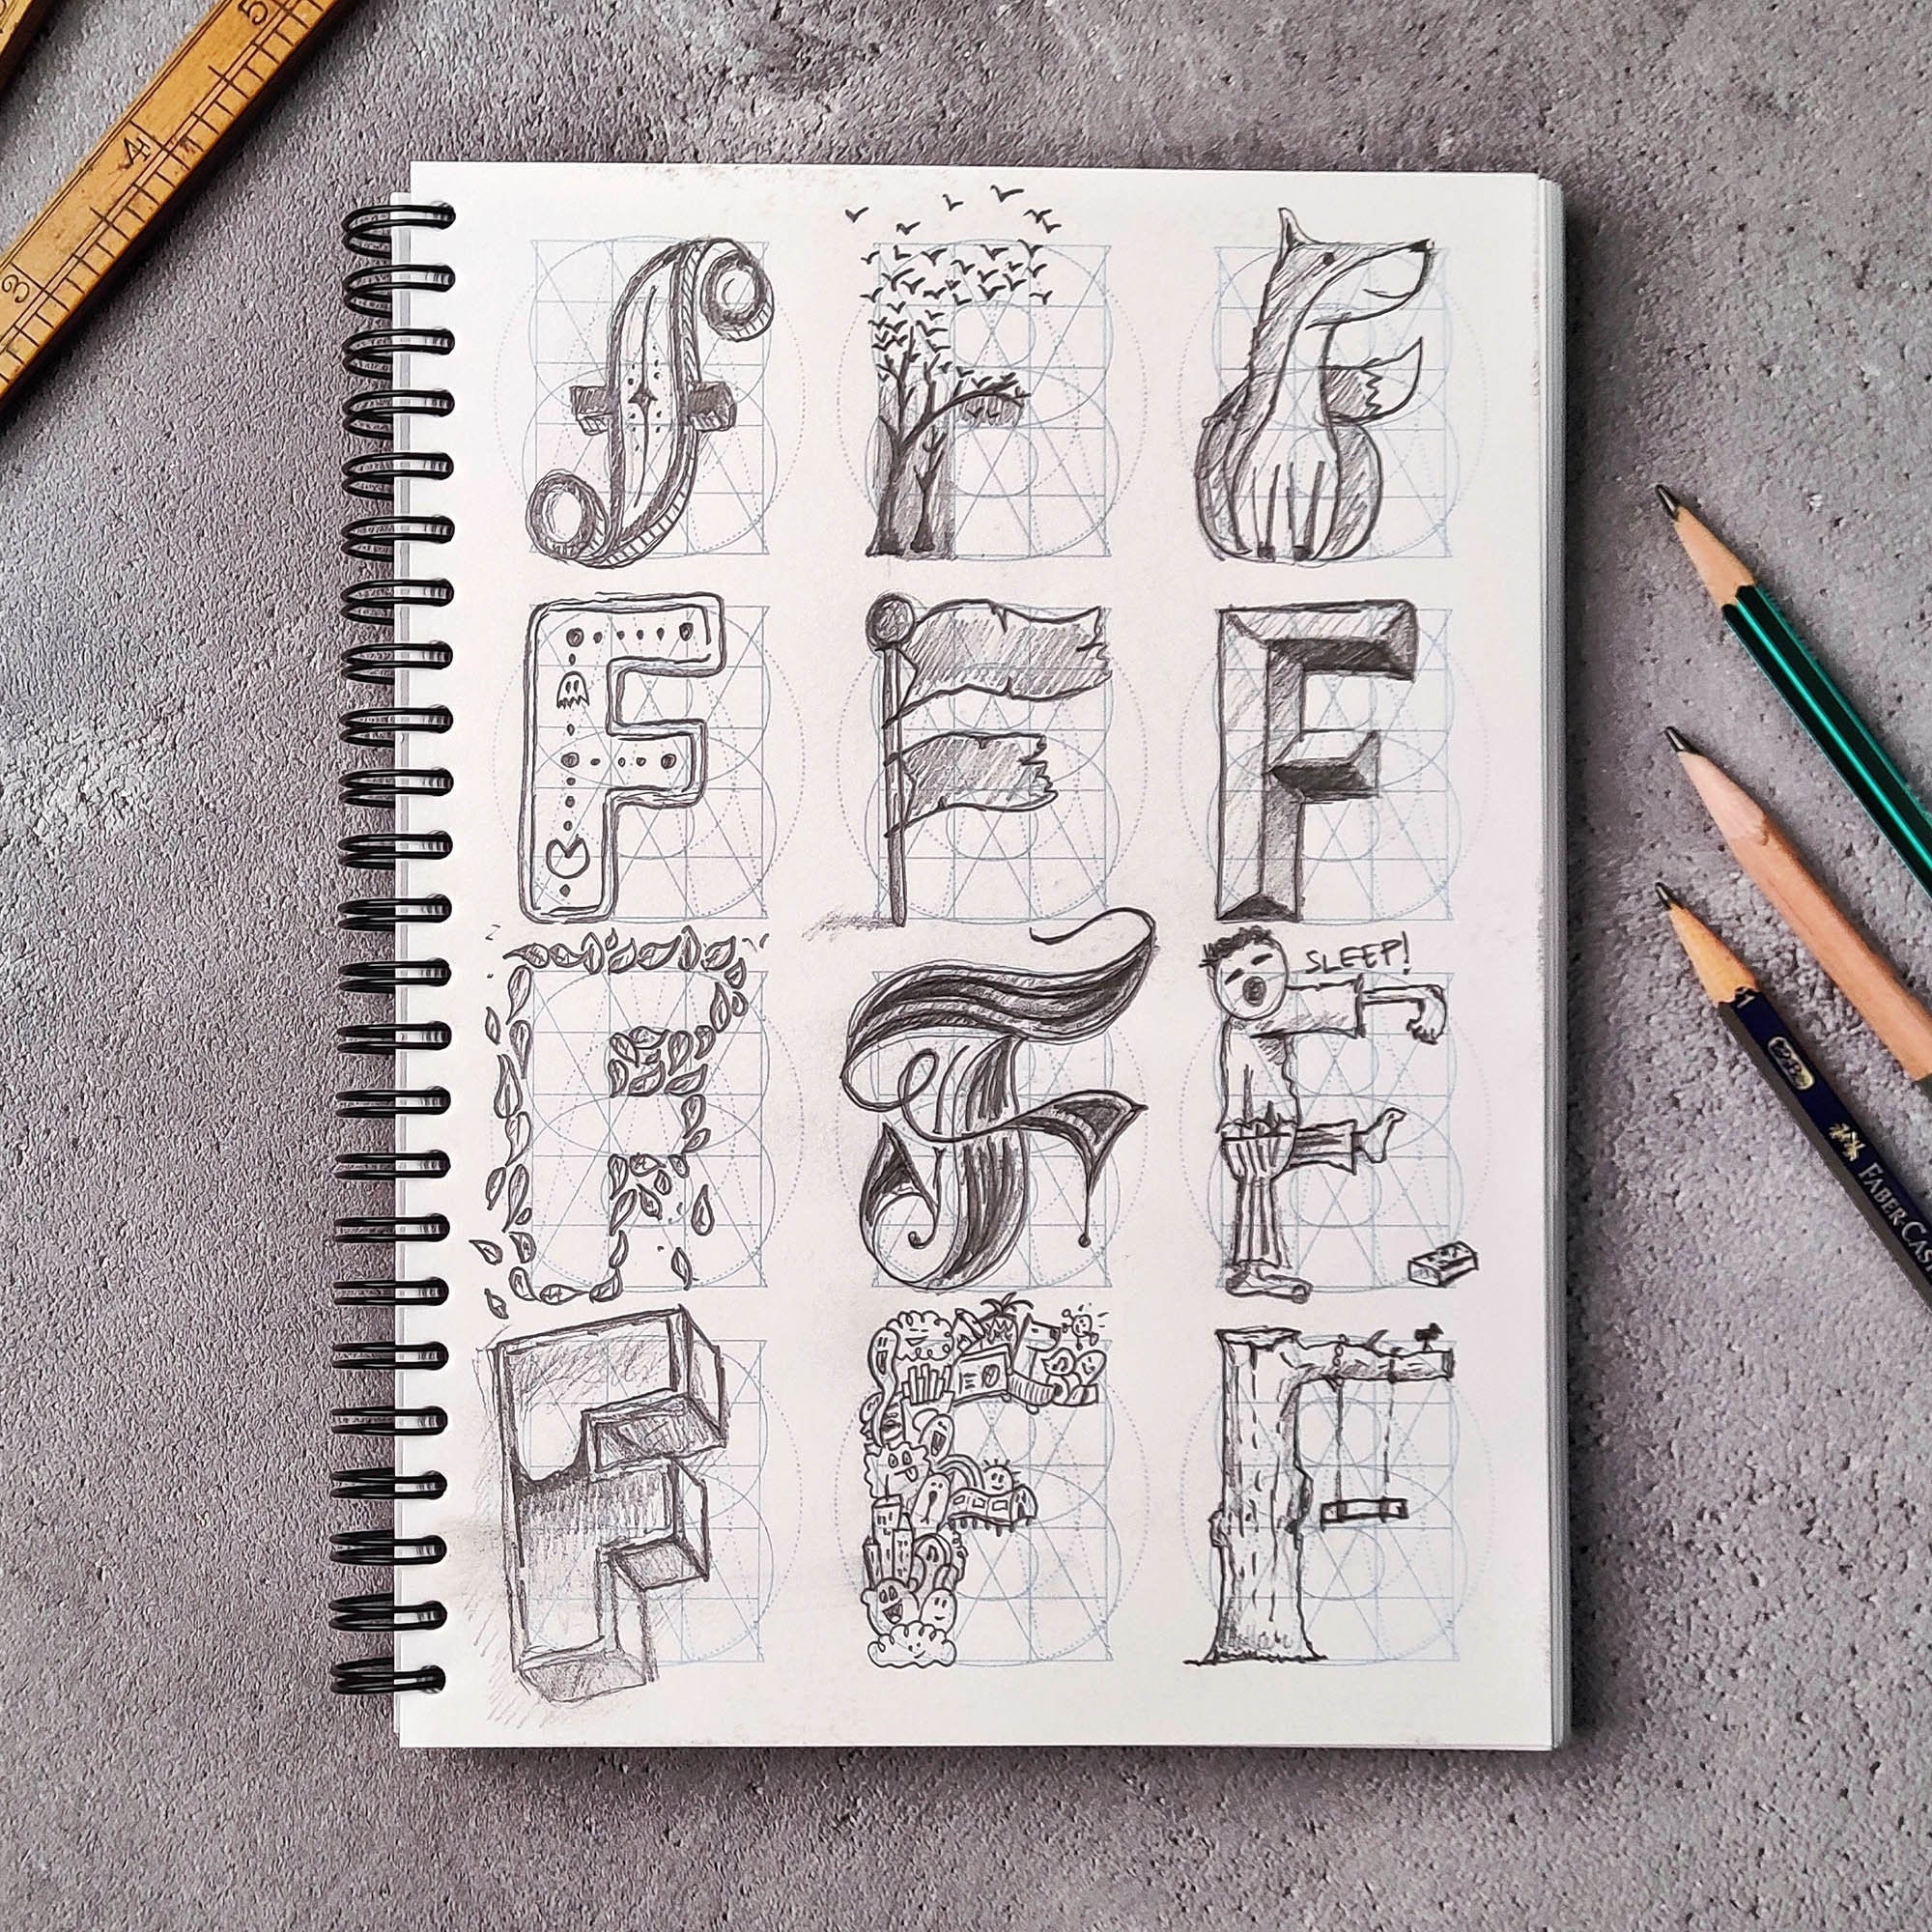 5
4
3
f F F
F F F
F F F
SLEEP!
F F F
2B
FABER CAST